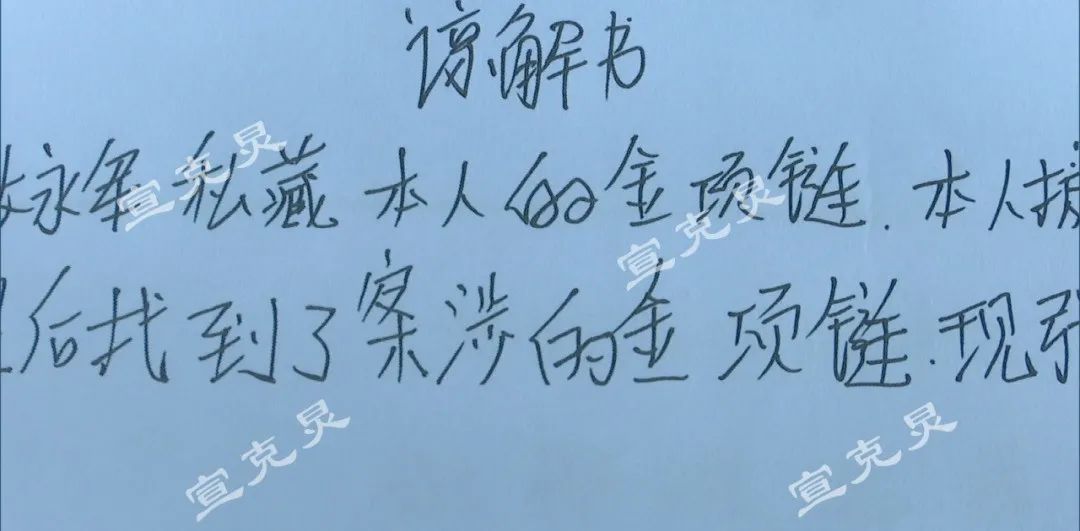 谅解书
永军私藏本人的金项链.本人
后找到了案涉的金项链.现
宣克炅
宣克炅
宣克炅
宣克炅